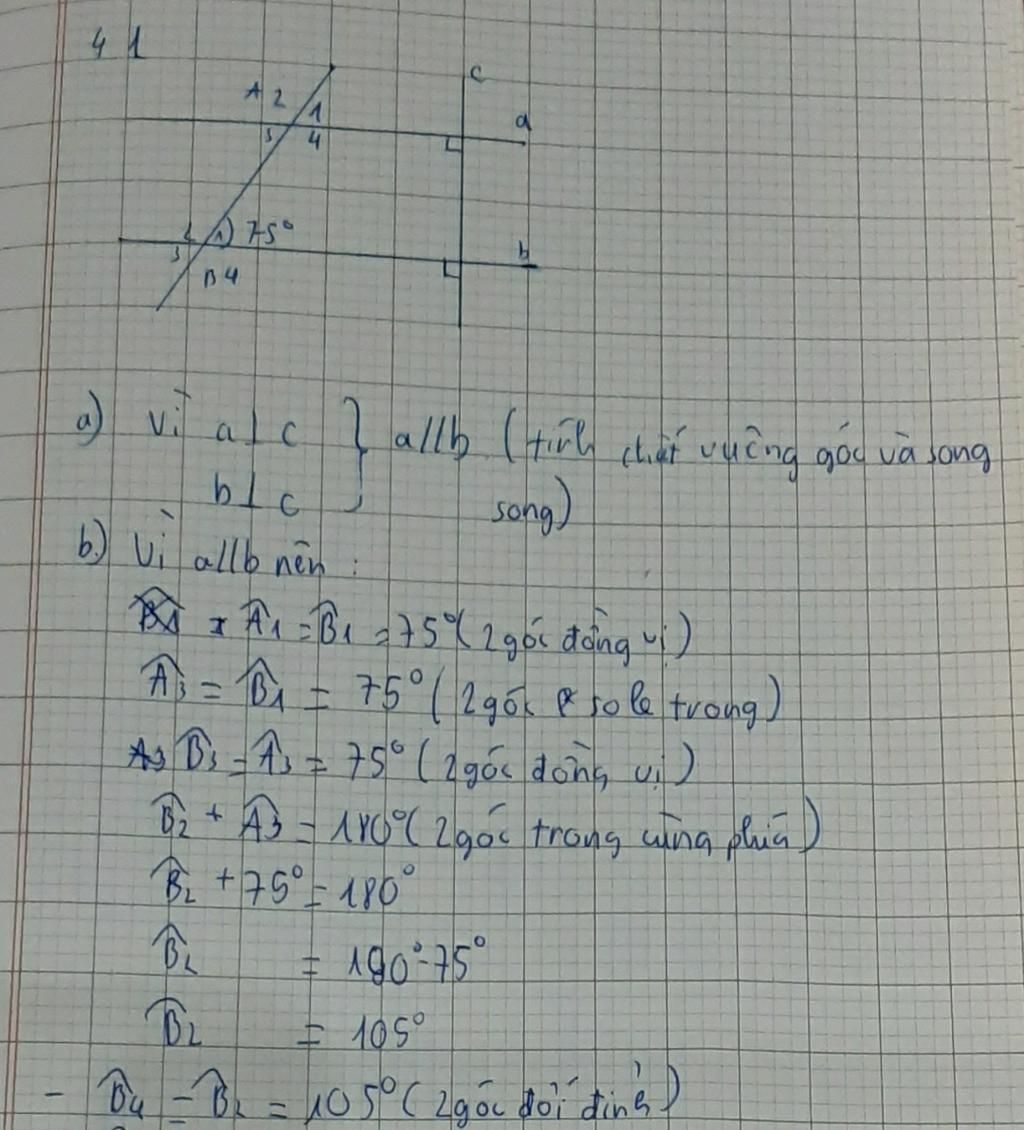 4 1
c
A 2 1
a
3 4
2 1 75°
b
3
B 4
a) Vì a ⊥ c } a//b (tính chất vuông góc và song
b ⊥ c song)
b) Vì a//b nên :
Â1 = B̂1 = 75° (2 góc đồng vị)
Â3 = B̂1 = 75° (2 góc so le trong)
B̂3 = Â3 = 75° (2 góc đồng vị)
B̂2 + Â3 = 180° (2 góc trong cùng phía)
B̂2 + 75° = 180°
B̂2 = 180° - 75°
B̂2 = 105°
- B̂4 = B̂2 = 105° (2 góc đối đỉnh)